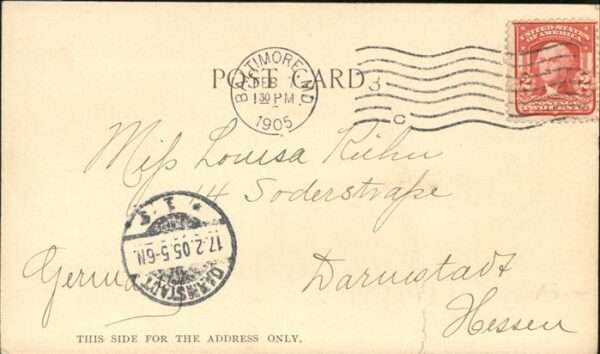 UNITED STATES OF AMERICA
2 2
POSTAGE
TWO CENTS
POST CARD
BALTIMORE, MD
FEB 7
130 PM
1905
3
C
Miſs Louisa Kühn
14 Soderstraſse
17.2.05.5-6N.
DARMSTADT
Germany
Darmstadt
Hessen
THIS SIDE FOR THE ADDRESS ONLY.